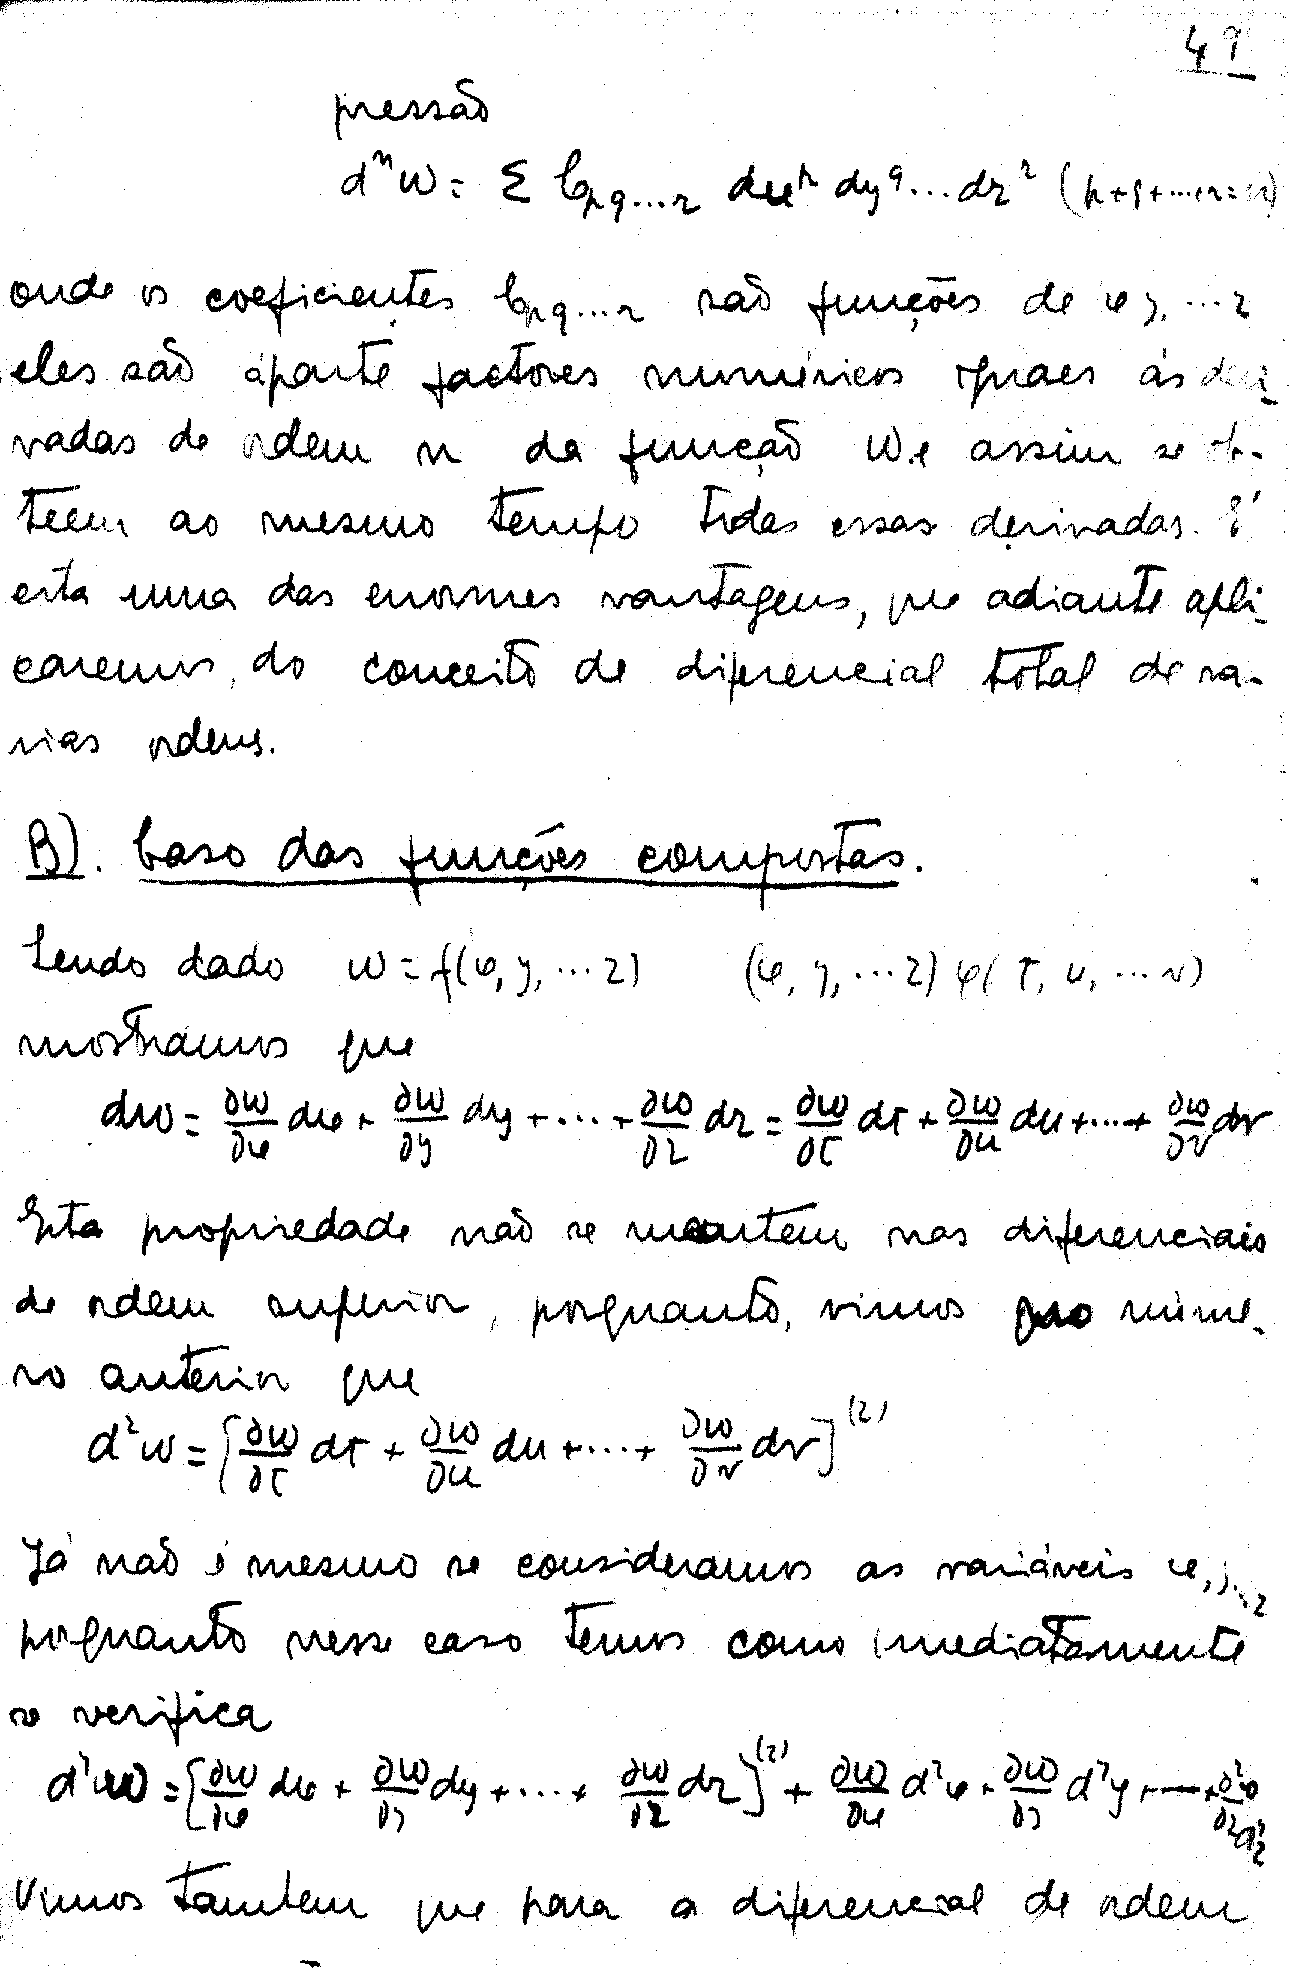 49
pressão
dⁿw = Σ C_{pq...r} dx^p dy^q ... dz^r (p+q+...+r=n)
onde os coeficientes C_{pq...r} são funções de x y, ... z
eles são áparte factores numéricos iguaes ás deri-
vadas de ordem n da função w e assim se ob-
teem ao mesmo tempo todas essas derivadas. É
esta uma das enormes vantagens, que adiante apli-
caremos, do conceito de diferencial total de va-
rias ordens.
B). Caso das funções compostas.
Sendo dado w = f(x, y, ... z) (x, y, ... z) φ( t, u, ... v)
mostramos que
dw = ∂w/∂x dx + ∂w/∂y dy + ... + ∂w/∂z dz = ∂w/∂t dt + ∂w/∂u du + ... + ∂w/∂v dv
Esta propriedade não se mantem nas diferenciais
de ordem superior, porquanto, vimos no núme-
ro anterior que
d²w = [∂w/∂t dt + ∂w/∂u du + ... + ∂w/∂v dv]⁽²⁾
Já não é mesmo se consideramos as variáveis x, y...z
porquanto nesse caso temos como imediatamente
se verifica
d²w = [∂w/∂x dx + ∂w/∂y dy + ... + ∂w/∂z dz]⁽²⁾ + ∂w/∂x d²x + ∂w/∂y d²y + ... + ∂w/∂z d²z
Vimos tambem que para a diferencial de ordem